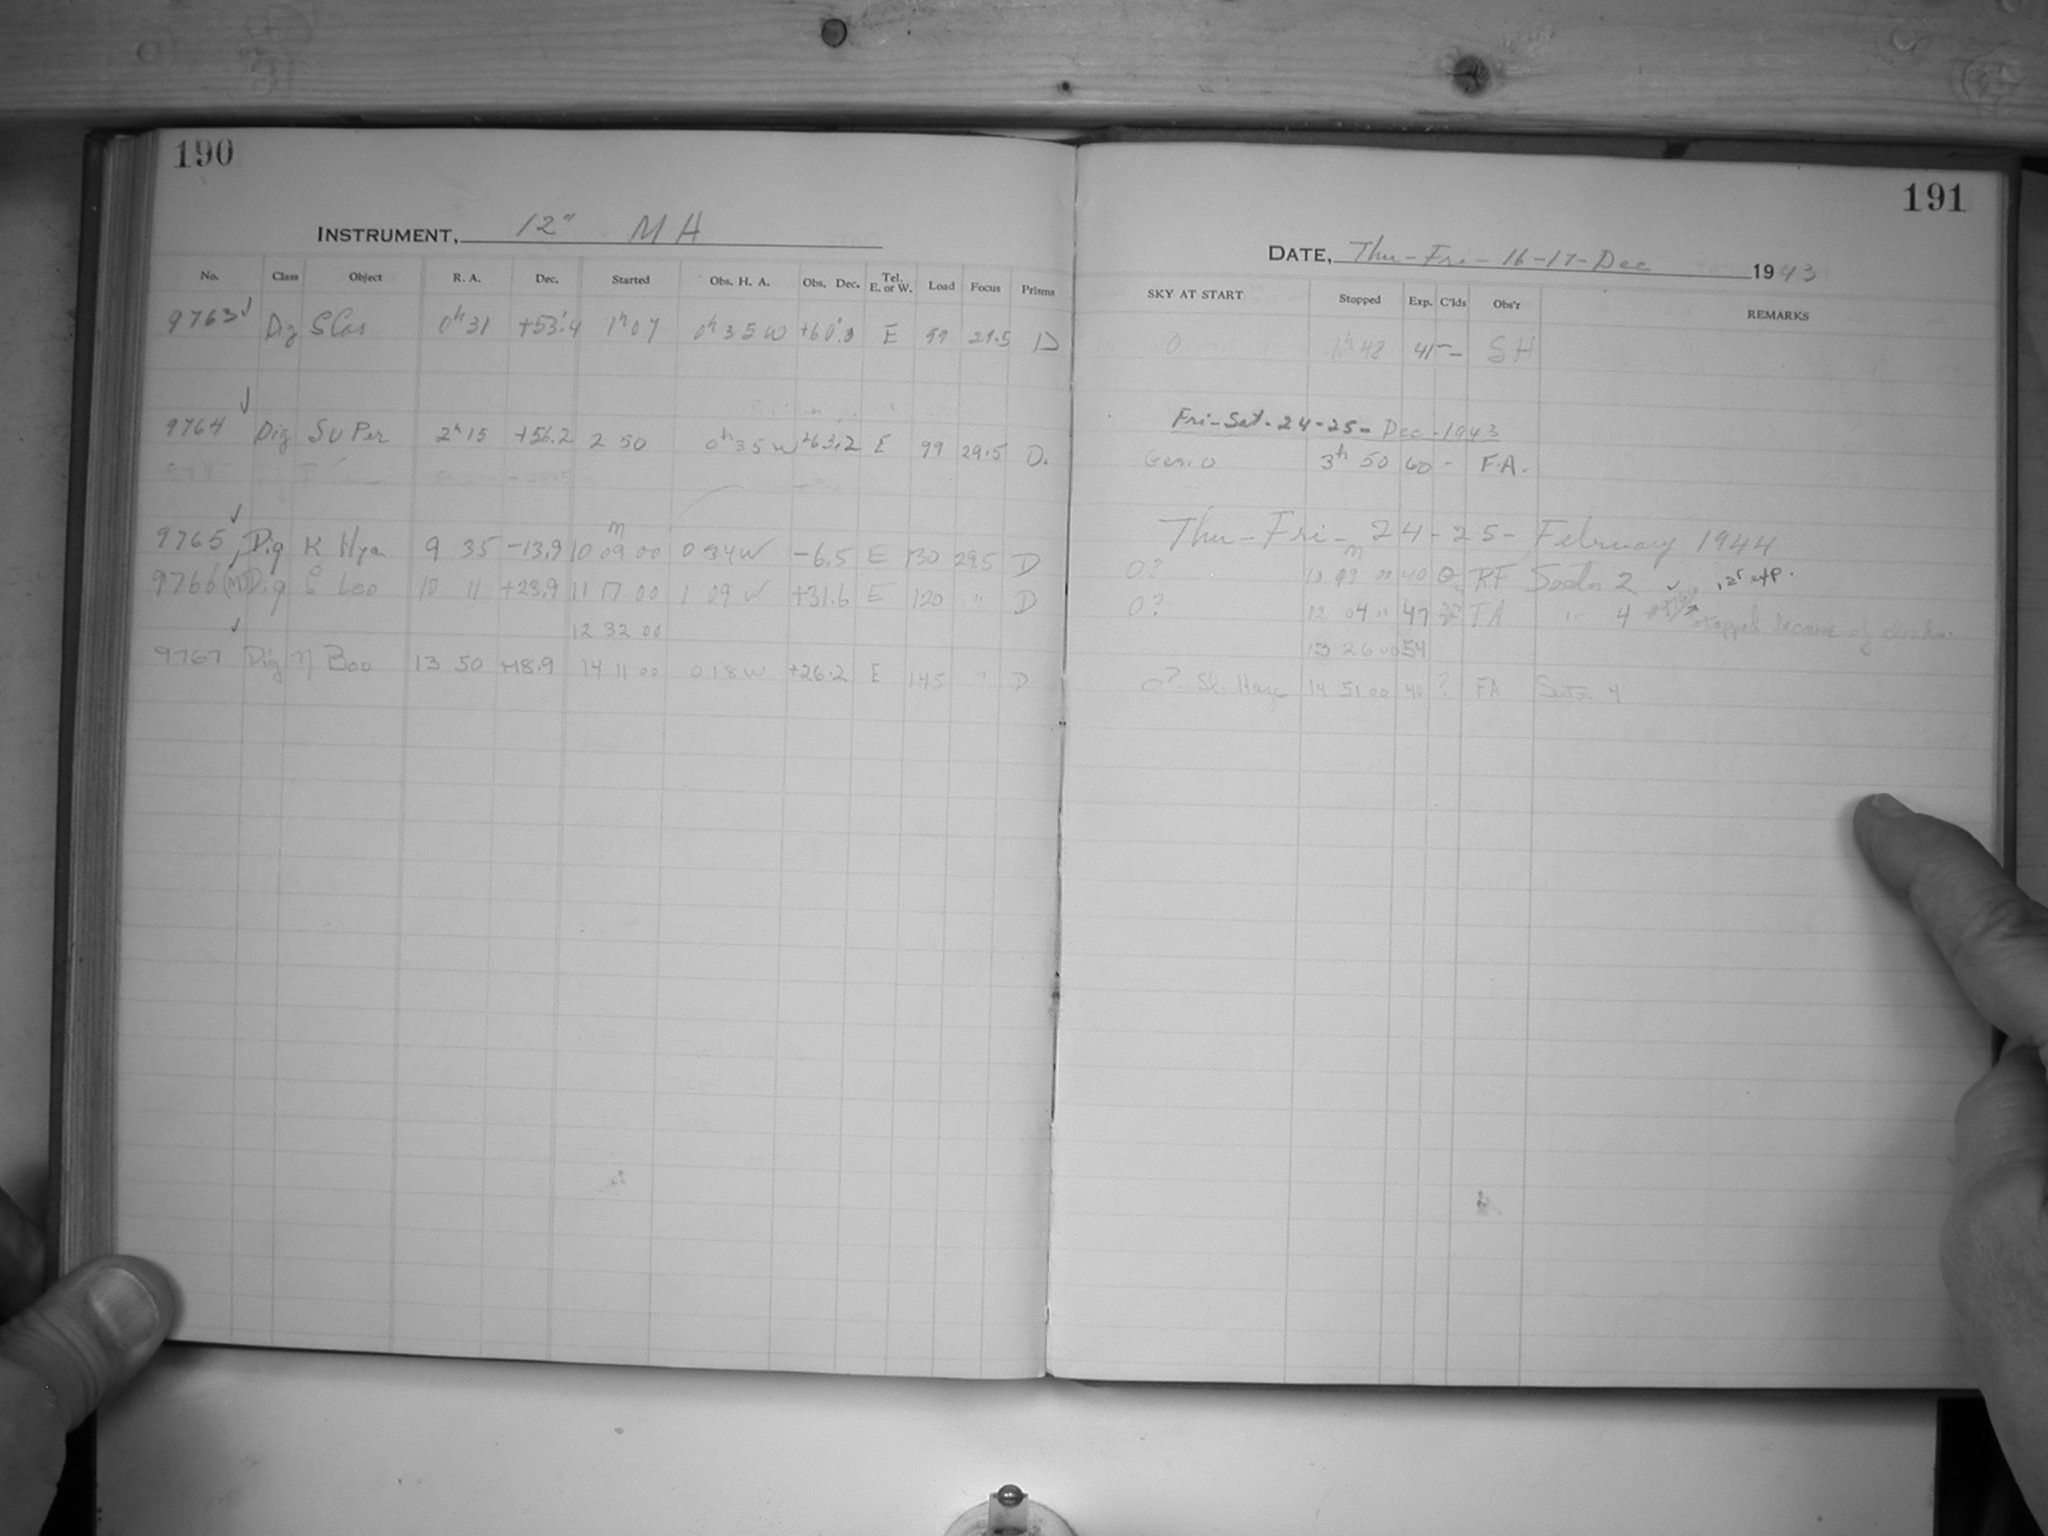 190
INSTRUMENT, 12" M H
No. Class Object R. A. Dec. Started Obs. H. A. Obs. Dec. Tel. E. or W. Load Focus Prisms
9763 Diz S Cas 0h 31 +53.4 1h 07 0h 35 W E 99 29.5 D
9764 Diz SU Per 2h 15 +56.2 2 50 0h 35 W +63.2 E 99 29.5 D.
9765 Diq K Hya 9 35 -13.9 10 09 00 0 34 W -6.5 E 130 29.5 D
9766 (M) Diq Leo 10 11 +23.9 11 17 00 1 09 W +31.6 E 120 " D
12 32 00
9767 Diq η Boo 13 50 +18.9 14 11 00 0 18 W +26.2 E 145 " D
191
DATE, Thu-Fri-16-17-Dec 1943
SKY AT START Stopped Exp. C'lds Obs'r REMARKS
0 1h 48 41 - SH
Fri-Sat-24-25-Dec-1943
Gen. 0 3h 50 60 - F.A.
Thu-Fri-24-25-February 1944
0? 40 RF Sector 2
0? 12 04 47 FA " 4 stopped because of
13 26 00 54
0? Sl. Haze 14 51 00 40 ? FA Sect. 4